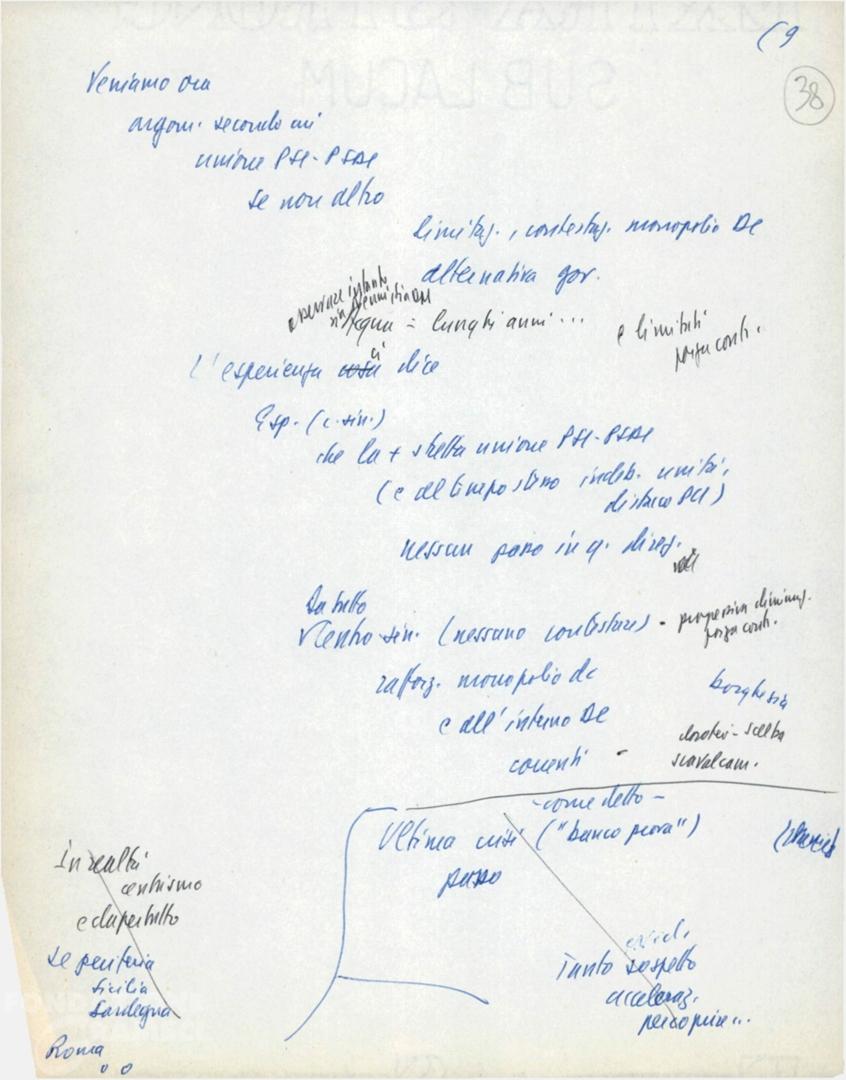 (9
38
Veniamo ora
argom. secondo cui
unione PSI-PSDI
se non altro
limitaz., contestaz. monopolio DC
alternativa gov.
osservare intanto
Acqua = lunghi anni...
e limitati
forza contr.
L'esperienza cosa ci dice
Esp. (c. sin.)
che la + stretta unione PSI-PSDI
(e al tempo stesso indeb. unità,
distacco PCI)
nessun passo in q. direz.
Da tutto
Centro-sin. (nessuno contestare) - progressiva diminuz.
forza contr.
rafforz. monopolio dc
borghesia
e all'interno DC
dorotei - scelba
correnti -
scavalcam.
- come detto -
Ultima crisi ("banco prova")
passo
In realtà
centrismo
e dapertutto
Se periferia
Sicilia
Sardegna
Roma
Tanto sospetto
acceleraz.